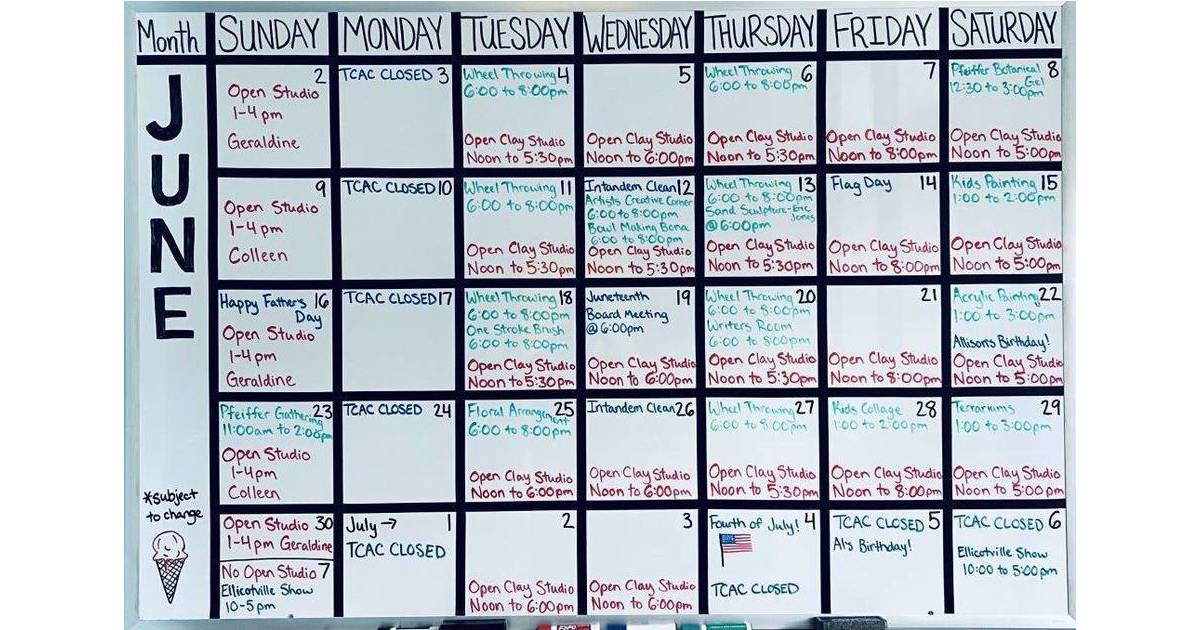 Month
SUNDAY
MONDAY
TUESDAY
WEDNESDAY
THURSDAY
FRIDAY
SATURDAY
JUNE
2
Open Studio
1-4 pm
Geraldine
TCAC CLOSED 3
Wheel Throwing 4
6:00 to 8:00pm
Open Clay Studio
Noon to 5:30pm
5
Open Clay Studio
Noon to 6:00pm
Wheel Throwing 6
6:00 to 8:00pm
Open Clay Studio
Noon to 5:30pm
7
Open Clay Studio
Noon to 8:00pm
Pfeiffer Botanical 8
Gel
12:30 to 3:00pm
Open Clay Studio
Noon to 5:00pm
9
Open Studio
1-4 pm
Colleen
TCAC CLOSED 10
Wheel Throwing 11
6:00 to 8:00pm
Open Clay Studio
Noon to 5:30pm
Intandem Clean 12
Artists Creative Corner
6:00 to 8:00pm
Bowl Making Bona
6:00 to 8:00pm
Open Clay Studio
Noon to 5:30pm
Wheel Throwing 13
6:00 to 8:00pm
Sand Sculpture-Eric
Jones
@ 6:00pm
Open Clay Studio
Noon to 5:30pm
Flag Day 14
Open Clay Studio
Noon to 8:00pm
Kids Painting 15
1:00 to 2:00pm
Open Clay Studio
Noon to 5:00pm
Happy Father's 16
Day
Open Studio
1-4 pm
Geraldine
TCAC CLOSED 17
Wheel Throwing 18
6:00 to 8:00pm
One Stroke Brush
6:00 to 8:00pm
Open Clay Studio
Noon to 5:30pm
Juneteenth 19
Board Meeting
@ 6:00pm
Open Clay Studio
Noon to 6:00pm
Wheel Throwing 20
6:00 to 8:00pm
Writers Room
6:00 to 8:00pm
Open Clay Studio
Noon to 5:30pm
21
Open Clay Studio
Noon to 8:00pm
Acrylic Painting 22
1:00 to 3:00pm
Allison's Birthday!
Open Clay Studio
Noon to 5:00pm
Pfeiffer Gathering 23
11:00am to 2:00pm
Open Studio
1-4pm
Colleen
TCAC CLOSED 24
Floral Arrangement 25
6:00 to 8:00pm
Open Clay Studio
Noon to 6:00pm
Intandem Clean 26
Open Clay Studio
Noon to 6:00pm
Wheel Throwing 27
6:00 to 8:00pm
Open Clay Studio
Noon to 5:30pm
Kids Collage 28
1:00 to 2:00pm
Open Clay Studio
Noon to 8:00pm
Terrariums 29
1:00 to 3:00pm
Open Clay Studio
Noon to 5:00pm
*subject
to change
Open Studio 30
1-4pm Geraldine
No Open Studio 7
Ellicotville Show
10-5pm
July → 1
TCAC CLOSED
2
Open Clay Studio
Noon to 6:00pm
3
Open Clay Studio
Noon to 6:00pm
Fourth of July! 4
TCAC CLOSED
TCAC CLOSED 5
Al's Birthday!
TCAC CLOSED 6
Ellicotville Show
10:00 to 5:00pm
EXPO